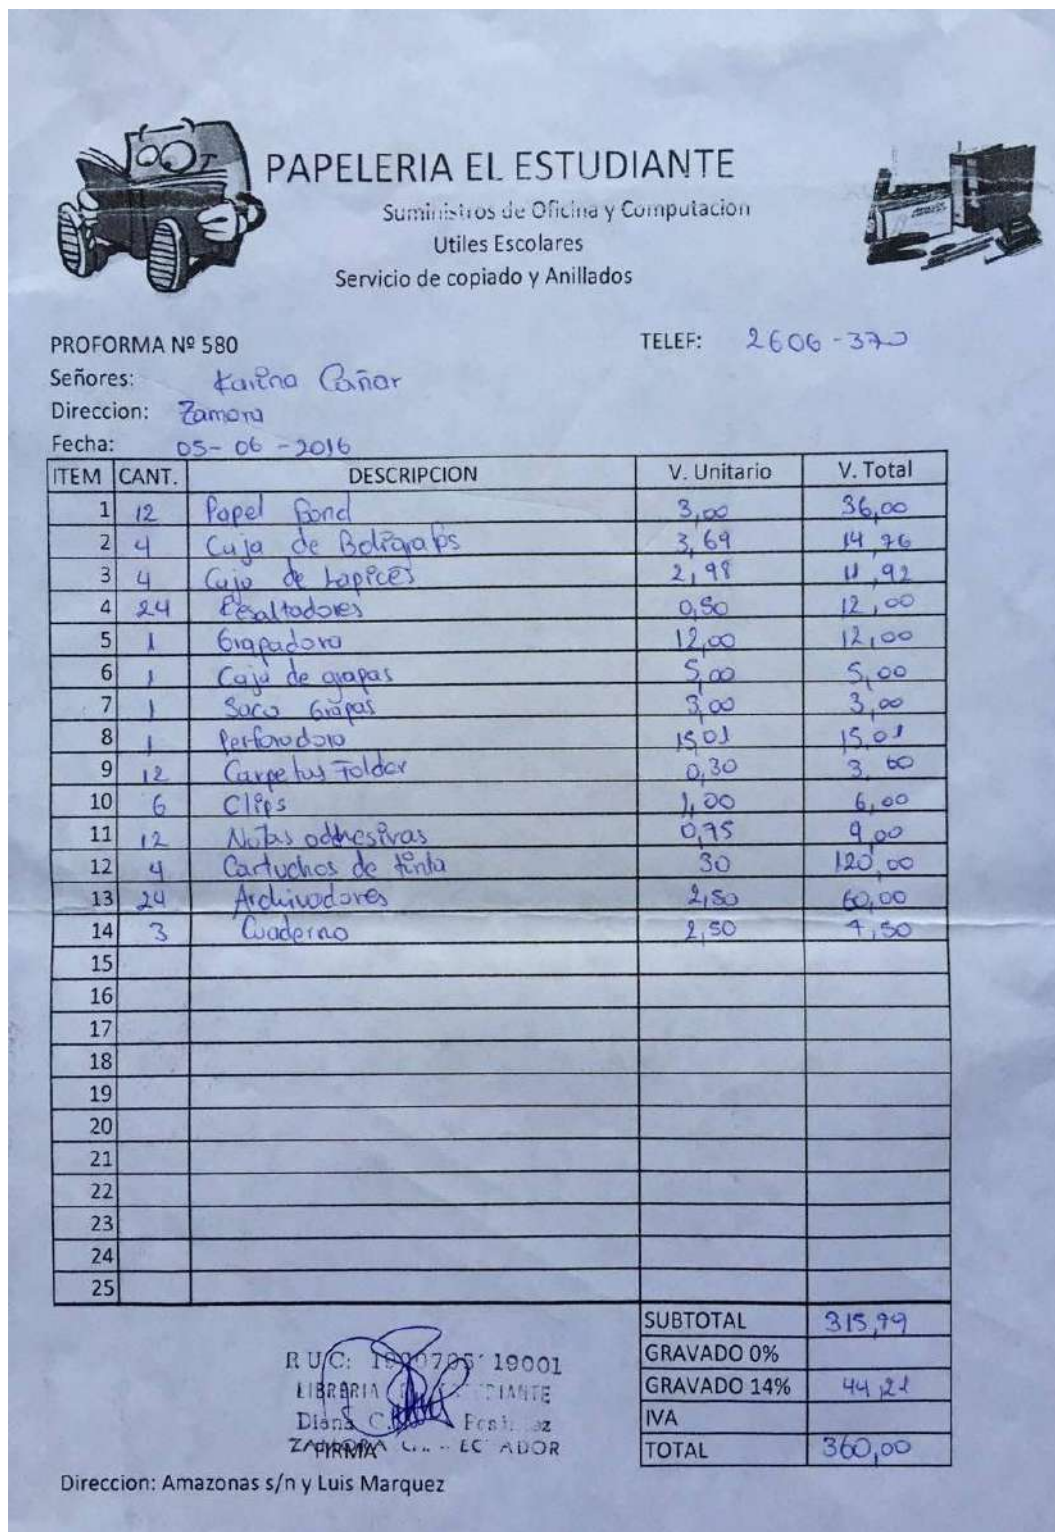 PAPELERIA EL ESTUDIANTE
Suministros de Oficina y Computacion
Utiles Escolares
Servicio de copiado y Anillados
PROFORMA Nº 580 TELEF: 2606-370
Señores: Karina Cañar
Direccion: Zamora
Fecha: 05-06-2016
ITEM CANT. DESCRIPCION V. Unitario V. Total
1 12 Papel Bond 3,00 36,00
2 4 Caja de Boligrafos 3,69 14,76
3 4 Caja de Lapices 2,98 11,92
4 24 Resaltadores 0,50 12,00
5 1 Grapadora 12,00 12,00
6 1 Caja de grapas 5,00 5,00
7 1 Saca Grapas 3,00 3,00
8 1 Perforadora 15,01 15,01
9 12 Carpetas Folder 0,30 3,60
10 6 Clips 1,00 6,00
11 12 Notas adhesivas 0,75 9,00
12 4 Cartuchos de tinta 30 120,00
13 24 Archivadores 2,50 60,00
14 3 Cuaderno 2,50 7,50
15
16
17
18
19
20
21
22
23
24
25
SUBTOTAL 315,79
GRAVADO 0%
GRAVADO 14% 44,21
IVA
TOTAL 360,00
RUC: 19001
LIBRERIA
Diana
ZAMORA ECUADOR
FIRMA
Direccion: Amazonas s/n y Luis Marquez